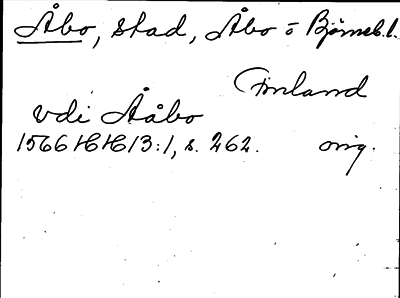 Åbo, stad, Åbo o Björneb. l.
Finland
vdi Ååbo
1566 HH 13:1, s. 262. orig.